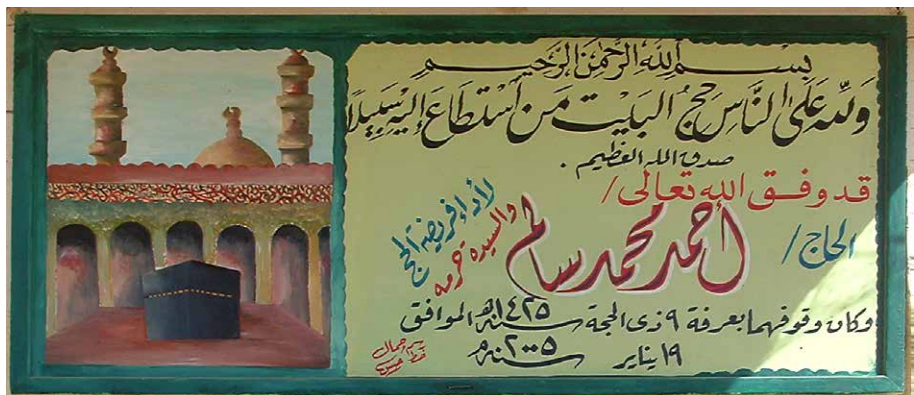 بِسْمِ اللَّهِ الرَّحْمَٰنِ الرَّحِيمِ
وَلِلَّهِ عَلَى النَّاسِ حِجُّ الْبَيْتِ مَنِ اسْتَطَاعَ إِلَيْهِ سَبِيلًا
صدق الله العظيم .
قد وفق الله تعالى /
الحاج /
أحمد محمد سالم
والسيدة حرمه
لأداء فريضة الحج
وكان وقوفهما بعرفة ٩ ذى الحجة سنة ١٤٢٥ هـ الموافق
١٩ يناير سنة ٢٠٠٥ م